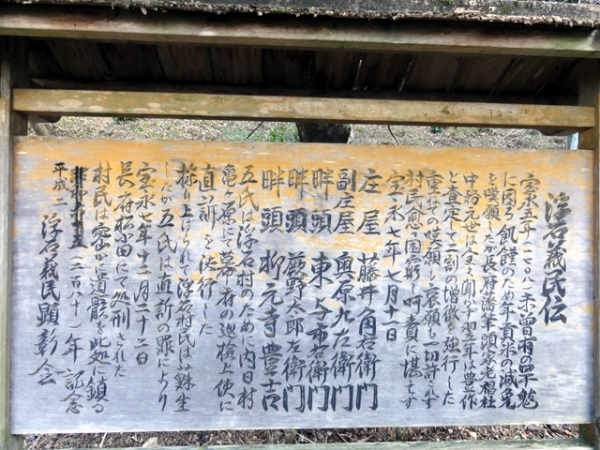 浮石義民伝
宝永五年(一七〇八)未曽有の旱魃
に因る飢饉のため年貢米の減免
を嘆願したが長府藩筆頭家老椙杜
中務元世は全く聞かず翌年は豊作
と査定して二割の増徴を強行した
重ね々の嘆願も哀願も一切許されず
村民愈々困窮し呵責に堪えず
宝永七年七月十二日
庄屋 藤井角右衛門
副庄屋 奥原九左衛門
畔頭 東与市右衛門
畔頭 蕨野太郎左衛門
畔頭 柳元寺豊吉
五氏は浮石村のために内日村
亀ヶ原にて幕府の巡検上使に
直訴を決行した
採り上げられて浮石村民は蘇生
したが五氏は直訴の罪により
宝永七年十二月二十二日
長府松小田にて処刑された
村民は密かに遺骸を此処に鎮る
平成二十
(二〇八)年 記念
浮石義民顕彰会